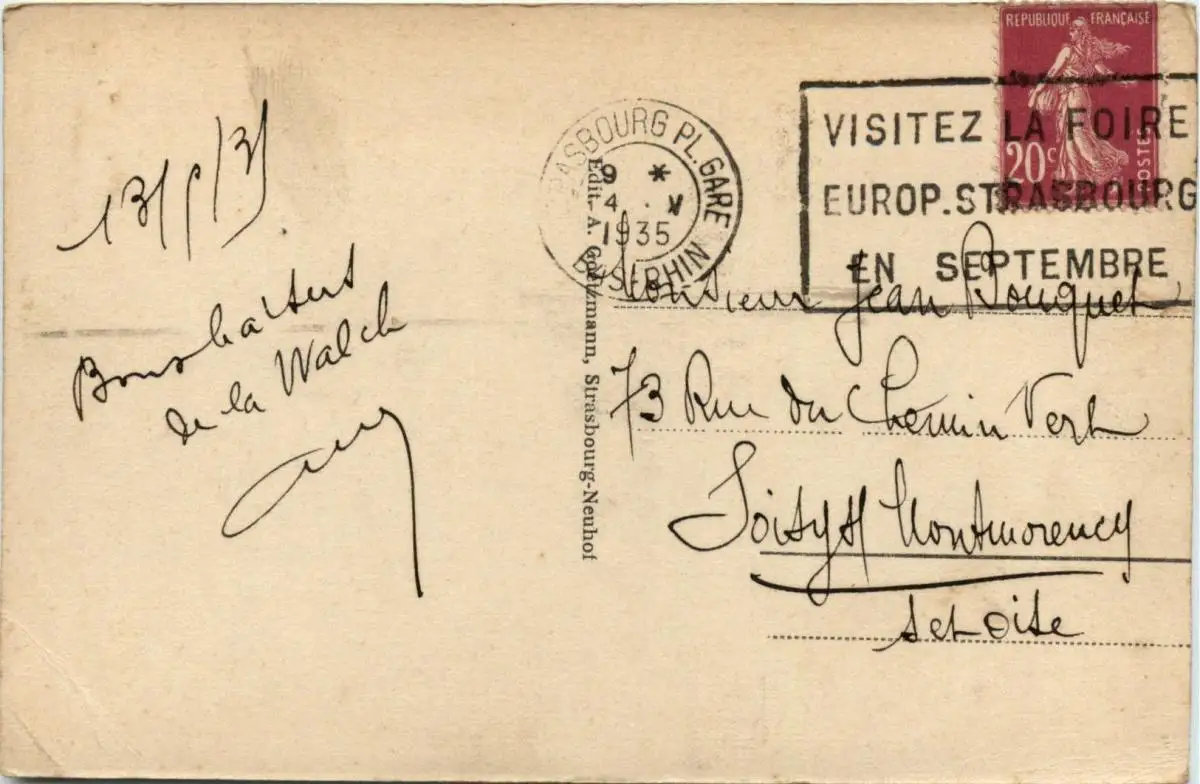 13/5/35
Bons baisers
de la Walck
RÉPUBLIQUE FRANÇAISE
20c
POSTES
STRASBOURG PL. GARE
9 *
4 . V
1935
BAS-RHIN
VISITEZ LA FOIRE
EUROP. STRASBOURG
EN SEPTEMBRE
Edit. A. Goetzmann, Strasbourg-Neuhof
Monsieur Jean Bouquet
73 Rue du Chemin Vert
Soisy s/ Montmorency
S et Oise